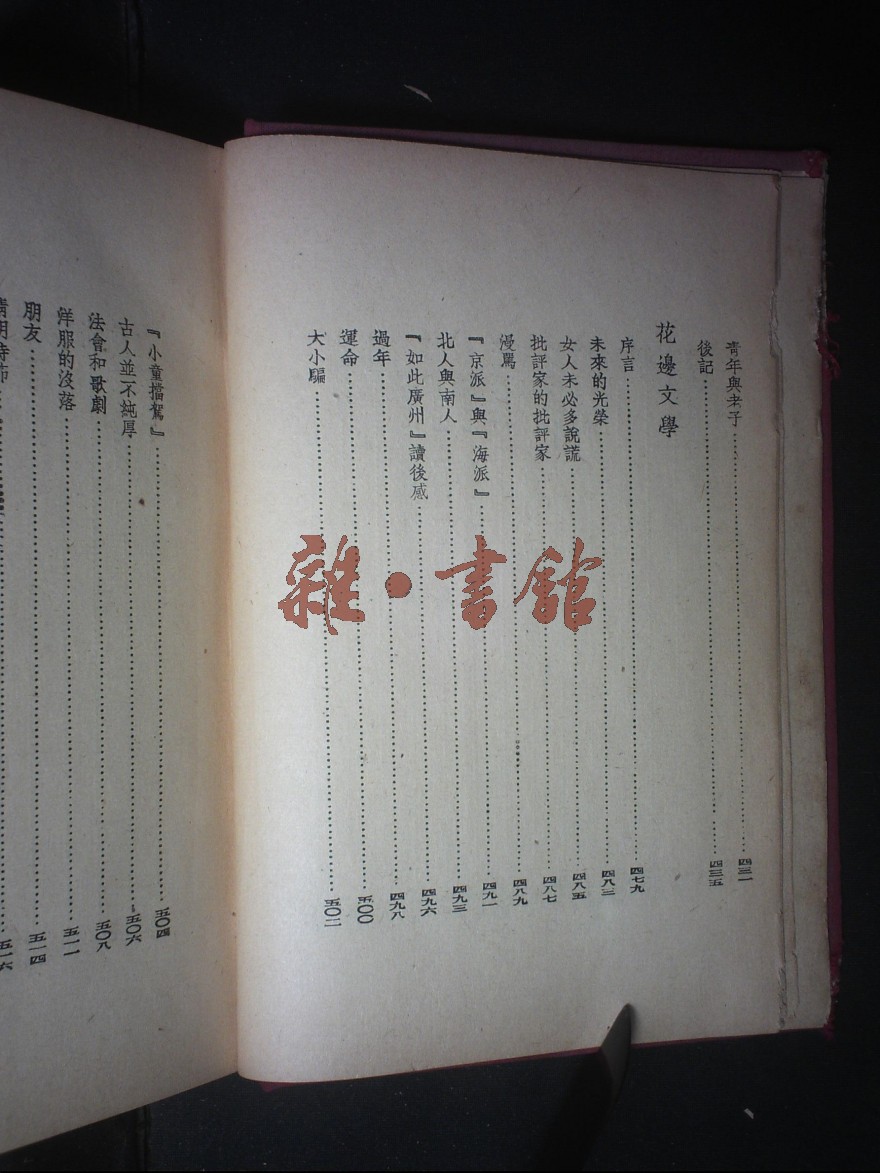 青年與老子……四三一
後記……四三五
花邊文學
序言……四七九
未來的光榮……四八三
女人未必多說謊……四八五
批評家的批評家……四八七
漫罵……四八九
『京派』與『海派』……四九一
北人與南人……四九三
『如此廣州』讀後感……四九六
過年……四九八
運命……五〇〇
大小騙……五〇二
『小童擋駕』……五〇四
古人並不純厚……五〇六
法會和歌劇……五〇八
洋服的沒落……五一一
朋友……五一四
清明時節……五一六
雜·書館